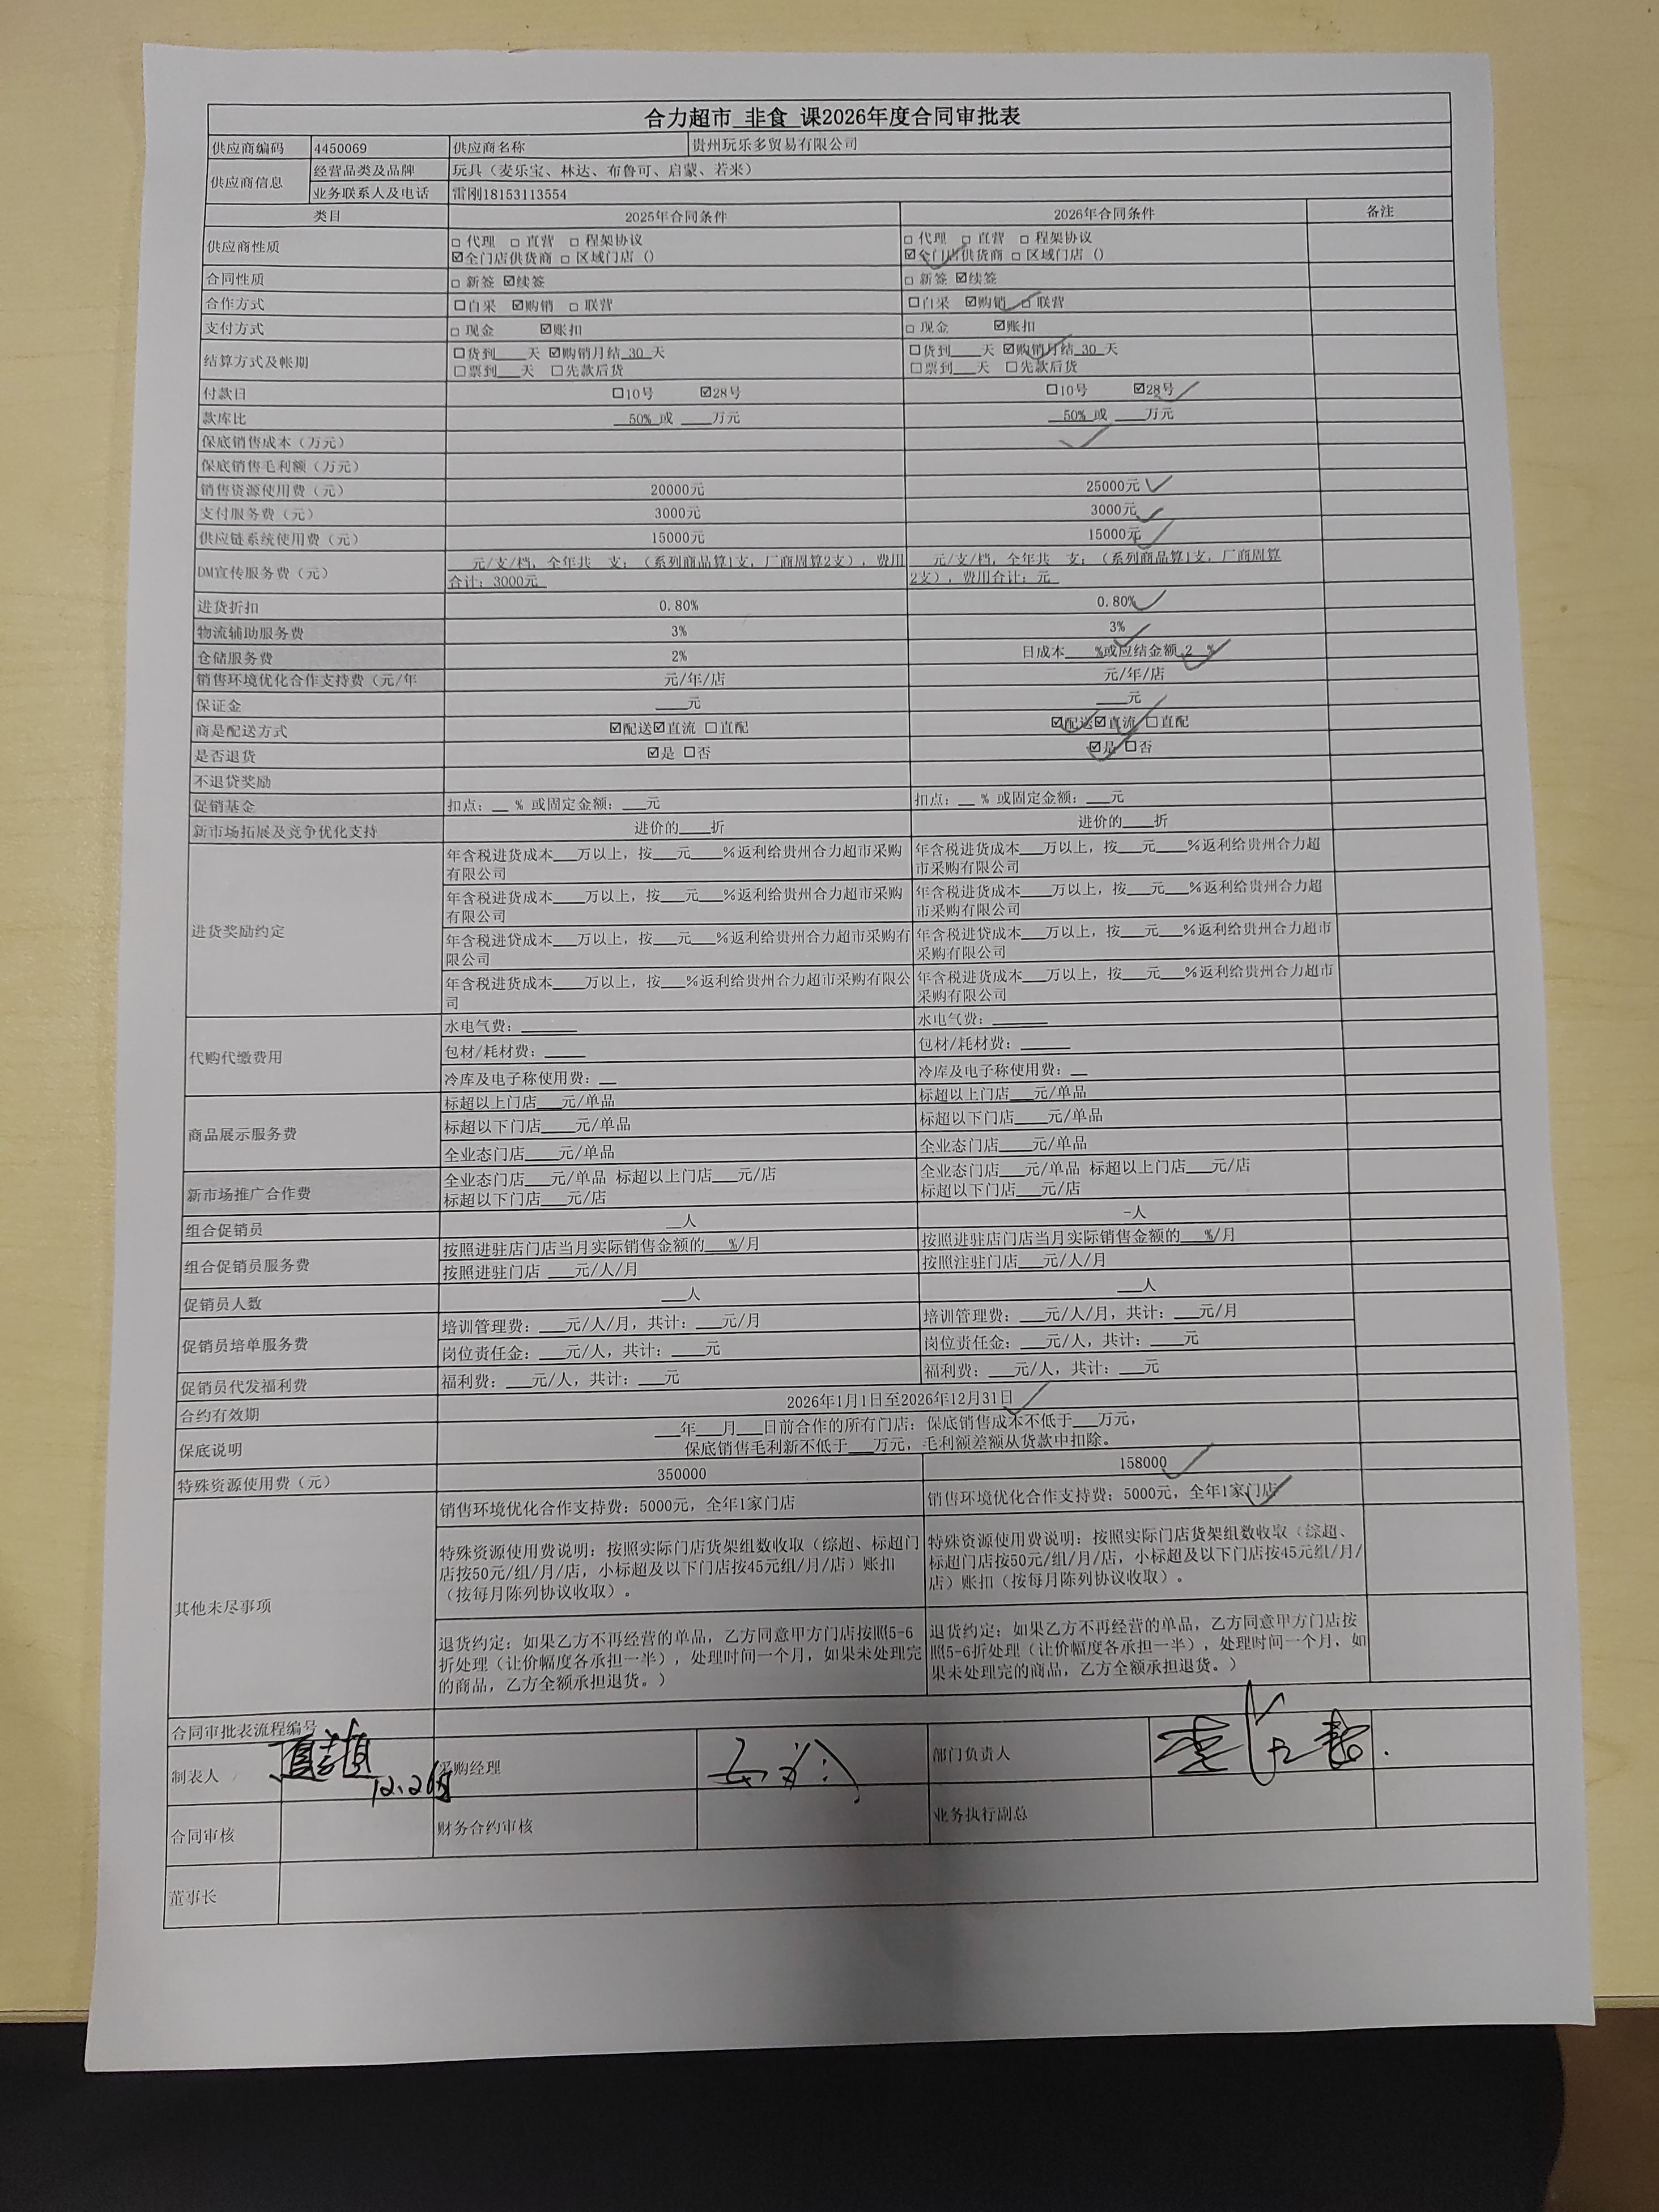 合力超市 非食 课2026年度合同审批表
供应商编码 4450069 供应商名称 贵州玩乐多贸易有限公司
供应商信息 经营品类及品牌 玩具（麦乐宝、林达、布鲁可、启蒙、若米）
业务联系人及电话 雷刚18153113554
类目 2025年合同条件 2026年合同条件 备注
供应商性质 □ 代理 □ 直营 □ 程架协议 □ 代理 □ 直营 □ 程架协议
☑全门店供货商 □ 区域门店 () ☑全门店供货商 □ 区域门店 ()
合同性质 □ 新签 ☑续签 □ 新签 ☑续签
合作方式 □自采 ☑购销 □ 联营 □自采 ☑购销 □ 联营
支付方式 □ 现金 ☑账扣 □ 现金 ☑账扣
结算方式及帐期 □货到____天 ☑购销月结 30 天 □货到____天 ☑购销月结 30 天
□票到___天 □先款后货 □票到___天 □先款后货
付款日 □10号 ☑28号 □10号 ☑28号
款库比 50% 或 ____万元 50% 或 ____万元
保底销售成本（万元）
保底销售毛利额（万元）
销售资源使用费（元） 20000元 25000元
支付服务费（元） 3000元 3000元
供应链系统使用费（元） 15000元 15000元
DM宣传服务费（元） 元/支/档, 全年共 支; （系列商品算1支, 厂商周算2支）, 费用合计: 3000元 元/支/档, 全年共 支; （系列商品算1支, 厂商周算2支）, 费用合计: 元
进货折扣 0.80% 0.80%
物流辅助服务费 3% 3%
仓储服务费 2% 日成本____%或应结金额 2 %
销售环境优化合作支持费（元/年 元/年/店 元/年/店
保证金 ____元 ____元
商是配送方式 ☑配送☑直流 □直配 ☑配送☑直流 □直配
是否退货 ☑是 □否 ☑是 □否
不退贷奖励
促销基金 扣点: __ % 或固定金额: ___元 扣点: __ % 或固定金额: ___元
新市场拓展及竞争优化支持 进价的____折 进价的____折
进货奖励约定 年含税进货成本___万以上, 按___元____%返利给贵州合力超市采购有限公司 年含税进货成本___万以上, 按___元___%返利给贵州合力超市采购有限公司
年含税进货成本____万以上, 按___元___%返利给贵州合力超市采购有限公司 年含税进货成本___万以上, 按___元___%返利给贵州合力超市采购有限公司
年含税进贷成本____万以上, 按___元___%返利给贵州合力超市采购有限公司 年含税进贷成本___万以上, 按___元___%返利给贵州合力超市采购有限公司
年含税进货成本____万以上, 按___%返利给贵州合力超市采购有限公司 年含税进货成本___万以上, 按___元___%返利给贵州合力超市采购有限公司
代购代缴费用 水电气费: ______ 水电气费: ______
包材/耗材费: ____ 包材/耗材费: _____
冷库及电子称使用费: __ 冷库及电子称使用费: __
商品展示服务费 标超以上门店___元/单品 标超以上门店___元/单品
标超以下门店____元/单品 标超以下门店____元/单品
全业态门店____元/单品 全业态门店____元/单品
新市场推广合作费 全业态门店___元/单品 标超以上门店___元/店 全业态门店___元/单品 标超以上门店___元/店
标超以下门店___元/店 标超以下门店___元/店
组合促销员 __人 -人
组合促销员服务费 按照进驻店门店当月实际销售金额的___%/月 按照进驻店门店当月实际销售金额的___%/月
按照进驻门店 ___元/人/月 按照注驻门店___元/人/月
促销员人数 ___人 ___人
促销员培单服务费 培训管理费: ___元/人/月, 共计: ___元/月 培训管理费: ___元/人/月, 共计: ___元/月
岗位责任金: ___元/人, 共计: ____元 岗位责任金: ___元/人, 共计: ____元
促销员代发福利费 福利费: ___元/人, 共计: ___元 福利费: ___元/人, 共计: ___元
合约有效期 2026年1月1日至2026年12月31日
保底说明 ___年___月___日前合作的所有门店: 保底销售成本不低于___万元,
保底销售毛利新不低于___万元, 毛利额差额从货款中扣除。
特殊资源使用费（元） 350000 158000
其他未尽事项 销售环境优化合作支持费: 5000元, 全年1家门店 销售环境优化合作支持费: 5000元, 全年1家门店
特殊资源使用费说明: 按照实际门店货架组数收取（综超、标超门店按50元/组/月/店, 小标超及以下门店按45元组/月/店）账扣（按每月陈列协议收取）。 特殊资源使用费说明: 按照实际门店货架组数收取（综超、标超门店按50元/组/月/店, 小标超及以下门店按45元组/月/店）账扣（按每月陈列协议收取）。
退货约定: 如果乙方不再经营的单品, 乙方同意甲方门店按照5-6折处理（让价幅度各承担一半）, 处理时间一个月, 如果未处理完的商品, 乙方全额承担退货。） 退货约定: 如果乙方不再经营的单品, 乙方同意甲方门店按照5-6折处理（让价幅度各承担一半）, 处理时间一个月, 如果未处理完的商品, 乙方全额承担退货。）
合同审批表流程编号
制表人 12.26 采购经理 部门负责人
合同审核 财务合约审核 业务执行副总
董事长